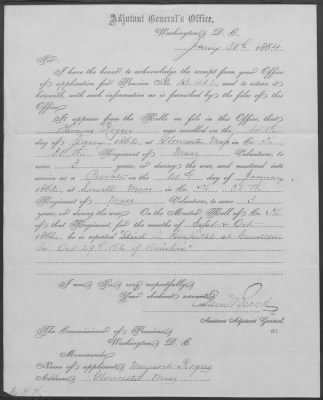 Adjutant General's Office,
Washington, D. C.,
30th 1864
Sir:
I have the honor to acknowledge the receipt from your Office
of application for Pension No. and to return it
herewith, with such information as is furnished by the files of this
Office.
It appears from the Rolls on file in this Office, that
Rogers was enrolled on the
day of 1862, at Gloucester Mass in Co.
30th Regiment of Mass Volunteers, to
serve 3 years, or during the war, and mustered into
service as a Private on the day of January
1862, at Lowell Mass in Co. 30th
Regiment of Mass Volunteers, to serve 3
years, or during the war. On the Muster Roll of Co.
of that Regiment, for the months of Sept & Oct
1862, he is reported Died in Hospital at
Oct 29th 1862 of
I am, Sir, very respectfully,
Your obedient servant,
Assistant Adjutant General.
The Commissioner of Pensions,
Washington, D. C.
Memoranda:
Name of applicant, Rogers
Address, Gloucester Mass